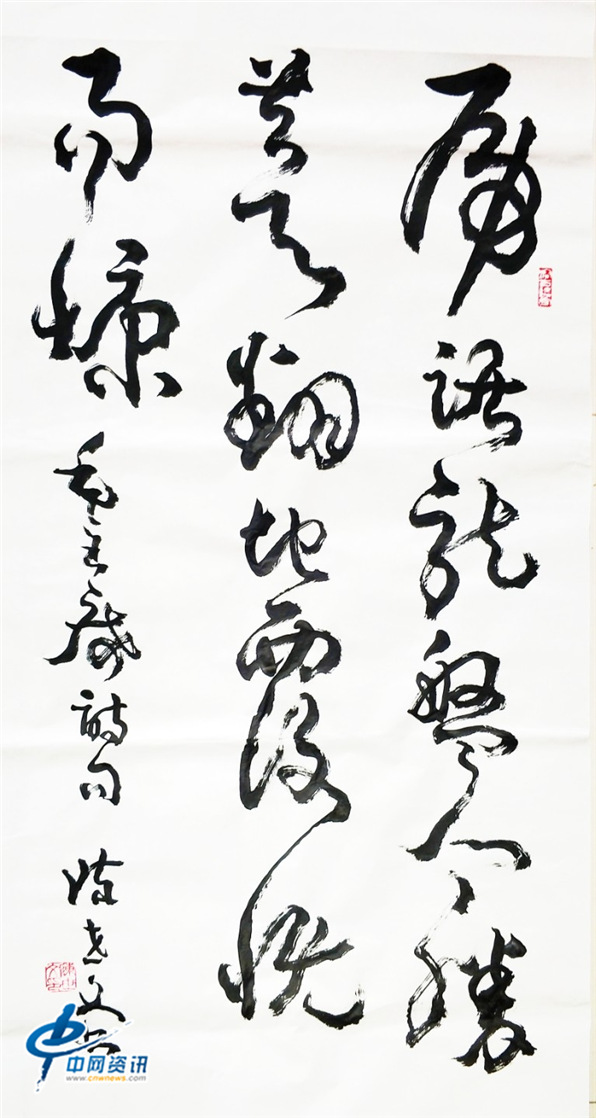 虎踞龍盤今勝
昔天翻地覆慨
而慷 毛主席詩句
中网资讯
www.cnwnews.com